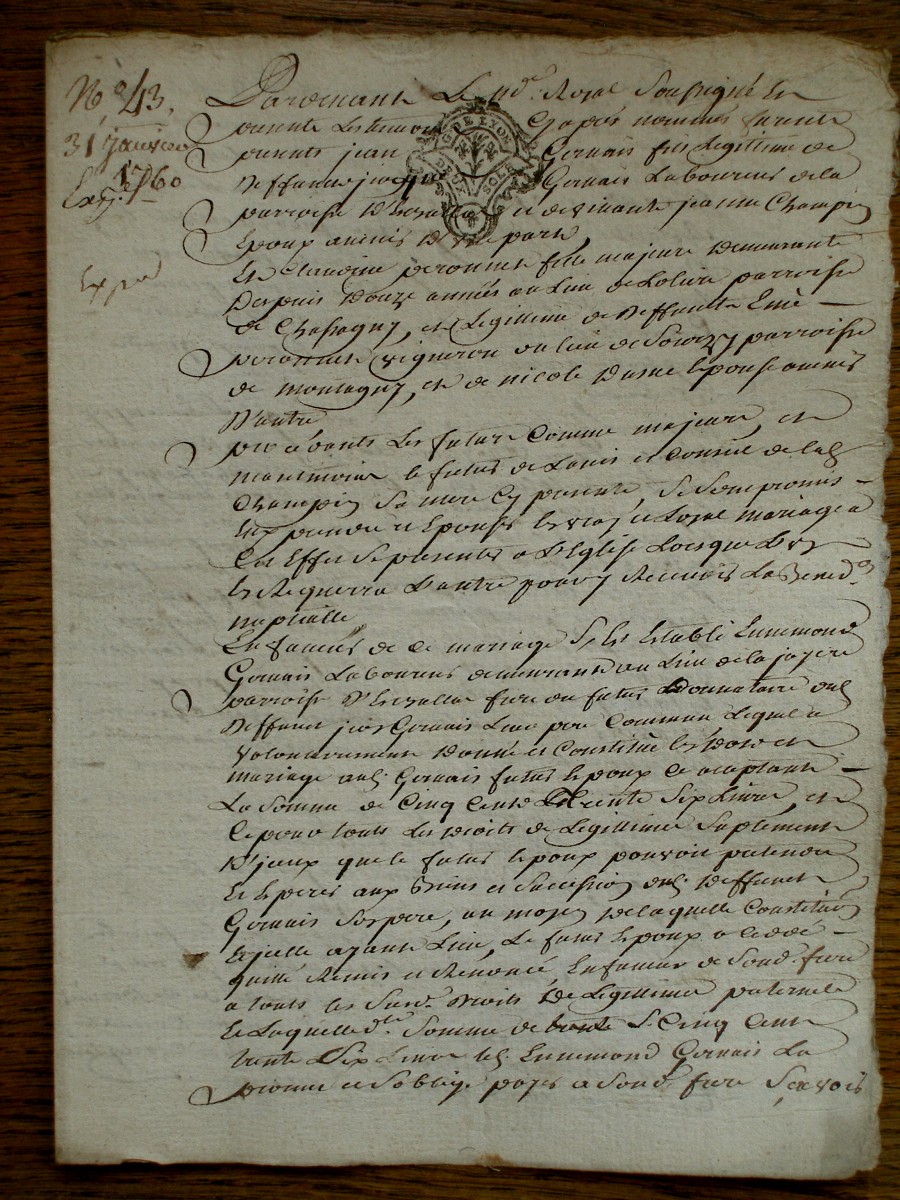 N.° 43.
31 janvier
1760
Exp.
Expé
Pardevant Le n.re Royal Soussigné Et
presents Les temoins Cy après nommés furent
presents jean Gervais fils Legittime de
Deffunt Gervais Laboureur de la
parroisse et de vivante jeanne Champin
Epoux avenir D'une part,
Et Claudine peronnet fille majeure Demeurante
Depuis Douze années au Lieu de parroisse
de Chassagny, et Legittime de Deffunt Emé
peronnet vigneron du Lieu de Sourzy parroisse
de montagny, et de nicole Epouse avenir
D'autre
procedants Les futurs Comme majeurs, et
neantmoins le futur de Lavis et Conseil de lad.
Champin Sa mere Cy presente, Se Sont promis
Se prendre et Epouser En vray et Loyal mariage a
Cet Effet Se presenter a L'Eglise Lorsque L'un
En Requerra L'autre pour y Recevoir La Bened.on
nuptialle
En faveur de Ce mariage S'est Establi Ennemond
Gervais Laboureur demeurant au Lieu de la
parroisse frere du futur Donnataire dud.
Deffunt Gervais Leur pere Commun Lequel a
volontairement Donné et Constitué En Dot et
mariage aud. Gervais futur Epoux Ce acceptant
La Somme de Cinq Cents Trente Six Livres, et
Ce pour touts Les droits de Legittime Suplement
D'jceux que le futur Epoux pouvoit pretendre
Et Esperer aux Biens et Succession dud. Deffunt
Gervais Son pere, au moyen de laquelle Constitution
Et jcelle ayant Lieu, Le futur Epoux a Cedé
quitté Remis et Renoncé En faveur de Sond. frere
a touts les Susd. Droits De Legittime paternelle
De Laquelle d.te Somme de Cinq Cent
trente Six Livres led. Ennemond Gervais La
promet et S'oblige payer a Sond. frere Scavoir